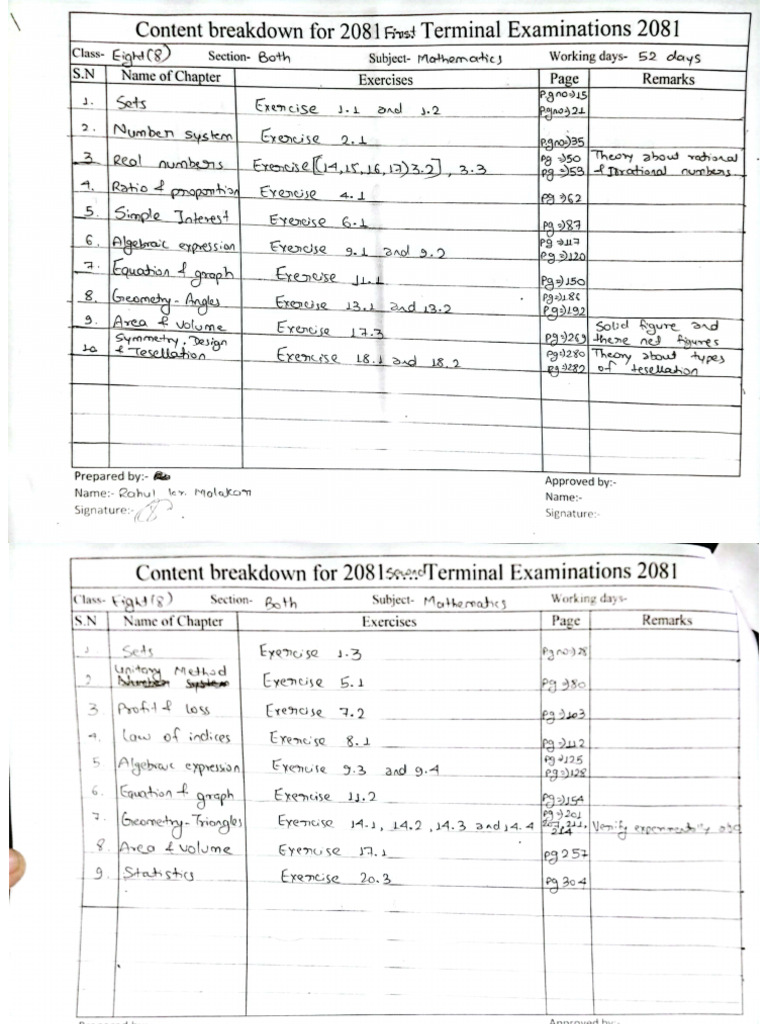 Content breakdown for 2081 First Terminal Examinations 2081
Class- Eight(8) Section- Both Subject- Mathematics Working days- 52 days
S.N Name of Chapter Exercises Page Remarks
1. Sets Exercise 1.1 and 1.2 Pgno⇒15 Pgno⇒21
2. Number system Exercise 2.1 Pgno⇒35
3 Real numbers Exercise[(14,15,16,17)3.2], 3.3 Pg⇒50 Pg⇒53 Theory about rational & Irrational numbers.
4. Ratio & proportion Exercise 4.1 Pg⇒62
5. Simple Interest Exercise 6.1 Pg⇒87
6. Algebraic expression Exercise 9.1 and 9.2 Pg⇒117 Pg⇒120
7. Equation & graph Exercise 11.1 Pg⇒150
8. Geometry-Angles Exercise 13.1 and 13.2 Pg⇒186 Pg⇒192
9. Area & volume Exercise 17.3 Pg⇒269 Solid figure and there net figures
10 Symmetry, Design & Tesellation Exercise 18.1 and 18.2 Pg⇒280 Pg⇒282 Theory about types of tesellation
Prepared by:- Approved by:-
Name:- Rahul kr. Malakar Name:-
Signature:- Signature:-
Content breakdown for 2081 Second Terminal Examinations 2081
Class- Eight(8) Section- Both Subject- Mathematics Working days-
S.N Name of Chapter Exercises Page Remarks
1 Sets Exercise 1.3 Pgno⇒28
2 Unitary Method Exercise 5.1 Pg⇒80
3 Profit & loss Exercise 7.2 Pg⇒103
4. Law of indices Exercise 8.1 Pg⇒112
5 Algebraic expression Exercise 9.3 and 9.4 Pg⇒125 Pg⇒128
6. Equation & graph Exercise 11.2 Pg⇒154
7. Geometry-Triangles Exercise 14.1, 14.2, 14.3 and 14.4 Pg⇒201 214 Verify
8. Area & volume Exercise 17.1 Pg 257
9. Statistics Exercise 20.3 Pg 304